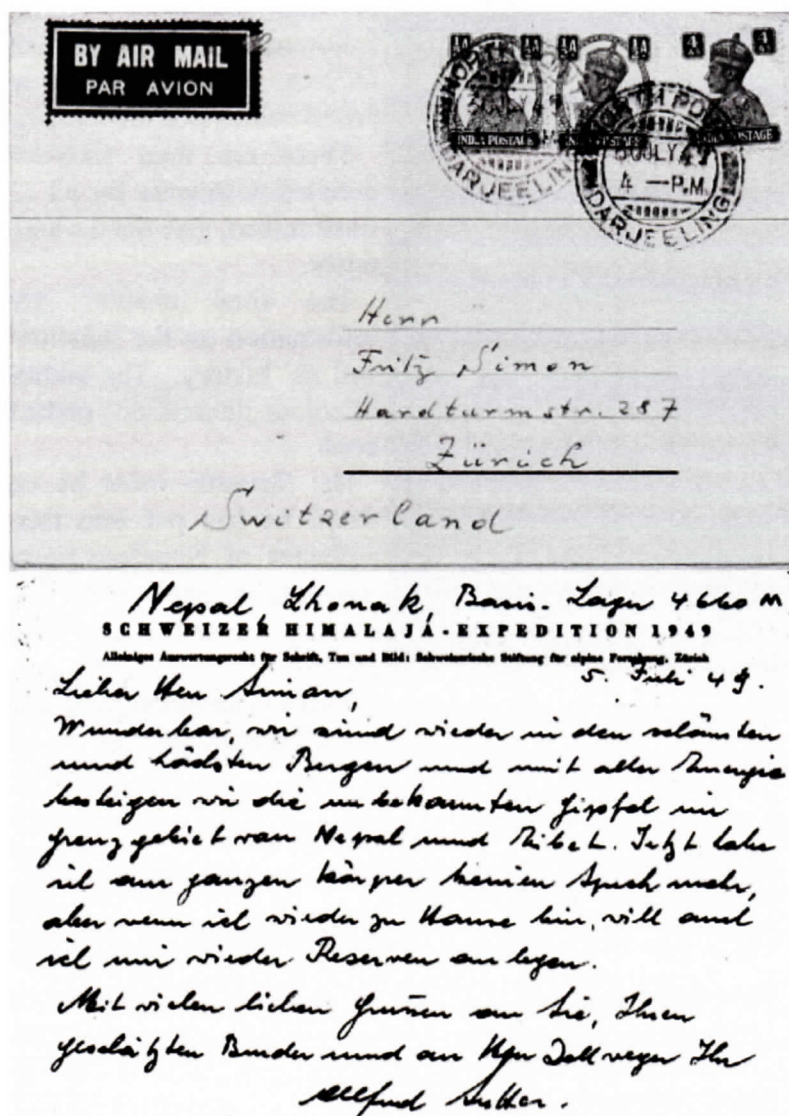 BY AIR MAIL
PAR AVION
INDIA POSTAGE
INDIA POSTAGE
INDIA POSTAGE
NORTH POINT
30 JLY 49
DARJEELING
NORTH POINT
30 JLY 49
4 – P.M.
DARJEELING
Herrn
Fritz Simon
Hardturmstr. 287
Zürich
Switzerland
Nepal, Lhonak, Basis-Lager 4660 M
SCHWEIZER HIMALAJA-EXPEDITION 1949
Alleiniges Auswertungsrecht für Schrift, Ton und Bild: Schweizerische Stiftung für alpine Forschung, Zürich
5. Juli 49.
Lieber Herr Simon,
Wunderbar, wir sind wieder in den schönsten
und höchsten Bergen und mit aller Energie
besteigen wir die unbekannten Gipfel im
Grenzgebiet von Nepal und Tibet. Jetzt habe
ich am ganzen Körper keinen Speck mehr,
aber wenn ich wieder zu Hause bin, will auch
ich mir wieder Reserven anlegen.
Mit vielen lieben Grüssen an Sie, Ihren
geschätzten Bruder und an Hern Zollweger Ihr
Alfred Sutter.